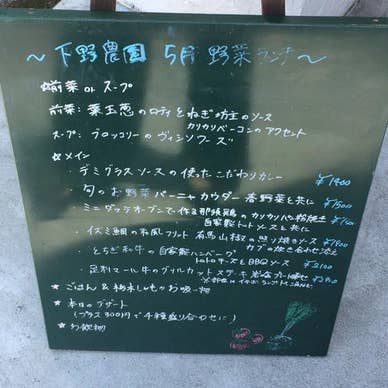 ～下野農園 5月野菜ランチ～
☆前菜 or スープ
前菜: 葉玉葱のロティとねぎ坊主のソース
カリカリベーコンのアクセント
スープ: ブロッコリーのヴィシソワーズ
☆メイン
・デミグラスソースの使ったこだわりカレー ¥1400
・旬のお野菜バーニャカウダー 春野菜と共に ¥1500
・ミニダッチオーブンで作る那須鶏のカリカリパン粉焼き
自家製トマトソースと共に
・イズミ鯛の和風フリット 有馬山椒の照り焼きソース ¥1800
カブの焼き合わせ添え
・とちぎ和牛の自家製ハンバーグ
トマトチーズとBBQソース ¥2100
・足利マール牛のグリルカットステーキ
★ごはん & 粉末しいものお吸い物
★本日のデザート
(プラス300円で4種盛り合わせに)
★お飲物